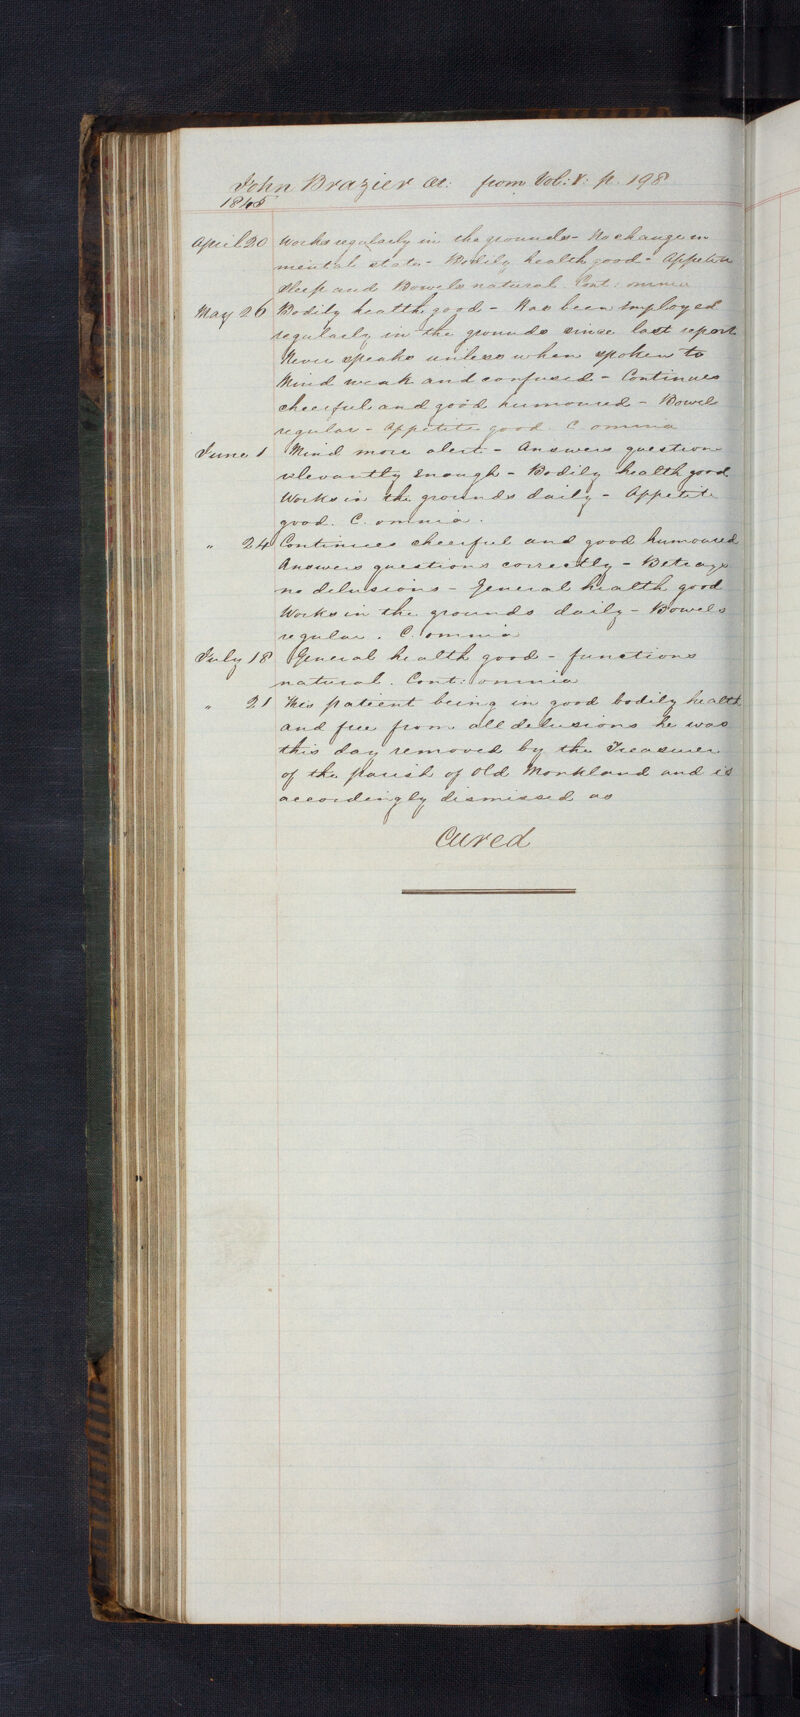 John Brazier from Vol: V: p. 198
1845
April 20 Works regularly in the grounds - No change in
mental state - Bodily health good - Appetite
sleep and Bowels natural. Cont: omnia
May 26 Bodily health good - Has been employed
regularly in the grounds since last report
Never speaks unless when spoken to
Mind weak and confused - Continues
cheerful and good humoured - Bowels
regular - Appetite good. C. omnia
June 1 Mind more alert - Answers questions
relevantly enough - Bodily health good
Works in the grounds daily - Appetite
good. C. omnia.
" 24 Continues cheerful and good humoured
Answers questions correctly - Betrays
no delusions - General health good
Works in the grounds daily - Bowels
regular. C. omnia
July 18 General health good - functions
natural. Cont: omnia
" 21 This patient being in good bodily health
and free from all delusions he was
this day removed by the Treasurer
of the parish of Old Monkland and is
accordingly dismissed as
Cured